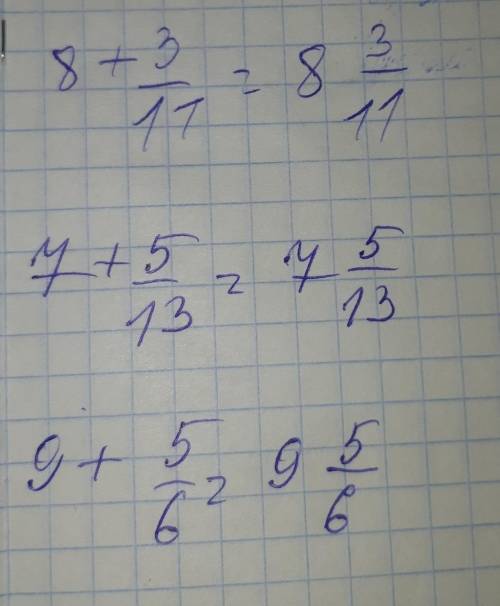 8 + 3/11 = 8 3/11
7 + 5/13 = 7 5/13
9 + 5/6 = 9 5/6